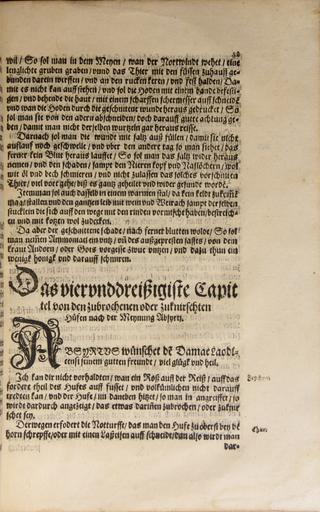 wil / So sol man in dem Meyen / wan der Nortwindt wehet / eine
lenglichte gruben graben / vnnd das Thier mit den füssen zuhauff ge-
bunden darein werffen / vnd an den rucken keren / vnd fest halden / Da-
mit es nicht kan auff stehen / vnd sol die Hoden mit einem bande befesti-
gen / vnd behende die haut / mit einem scharffen schermesser auff schneidē
vnd wan die Hoden durch die geschnittene wunde heraus gedrücket / So
sol man sie von den adern abschneiden / doch darauff gutte achtung ge-
ben / damit man nicht derselben wurzeln gar heraus reisse.
Darnach sol man die wunde mit saltz auß füllen / damit sie nicht
auslauff noch geschwelle / vnd vber den andern tag so man siehet / das
ferner kein Blut heraus lauffet / So sol man das saltz wider heraus
nemen / vnd den schaden / sampt den Nieren kopff vnd Naßlöchern / wol
mit öl vnd bech schmieren / vnd nicht zulassen das solches vorschnitten
Thier / viel vor gehe / biß es gantz geheilet vnd wider gesunt worde.
Jtem man sol auch dasselb in einem warmen stal / da kein kelde zukomē
mag / stallen vnd den gantzen leib mit wein vnd Weirach sampt der selben
stücklein die sich auff den wege mit den rinden vormischt haben / bestreich-
en vnd mit kotzen wol zudecken.
Da aber der geschnittene schade / nach ferner blutten wolde / So sol
man nemen Ammoniaci ein vntz / vn des außgepresten safftes / von dem
kraut Andorn / oder Gots vorgesse zwue vntzen / vnd dazu thun ein
wenigk honigk vnd darauff schmiren.
Das viervnddreißigiste Capit
tel von den zubrochenen oder zuknirschten
Hüfen nach der Meynung Absyrti,
ABSYRTVS wünschet dē Damae Laodi-
censi seinem gutten freunde / viel glügk vnd heil.
Jch kan dir nicht vorhalden / wan ein Roß auff der Reiß / auff das
forder theil des Hufes auff füsset / vnd volkümlichen nicht darauff
tredten kan / vnd der Hufe / im daneben hitzet / so man in angreiffet / so
wirdt dardurch angezeigt / das etwas darinn zubrochen / oder zuknir
schet sey.
Derwegen erfodert die Notturfft / das man den Hufe zuöberst bey dē
horn schrepffe / oder mit einen Laßeisen auff schneidt / dan also wirdt man
dar-